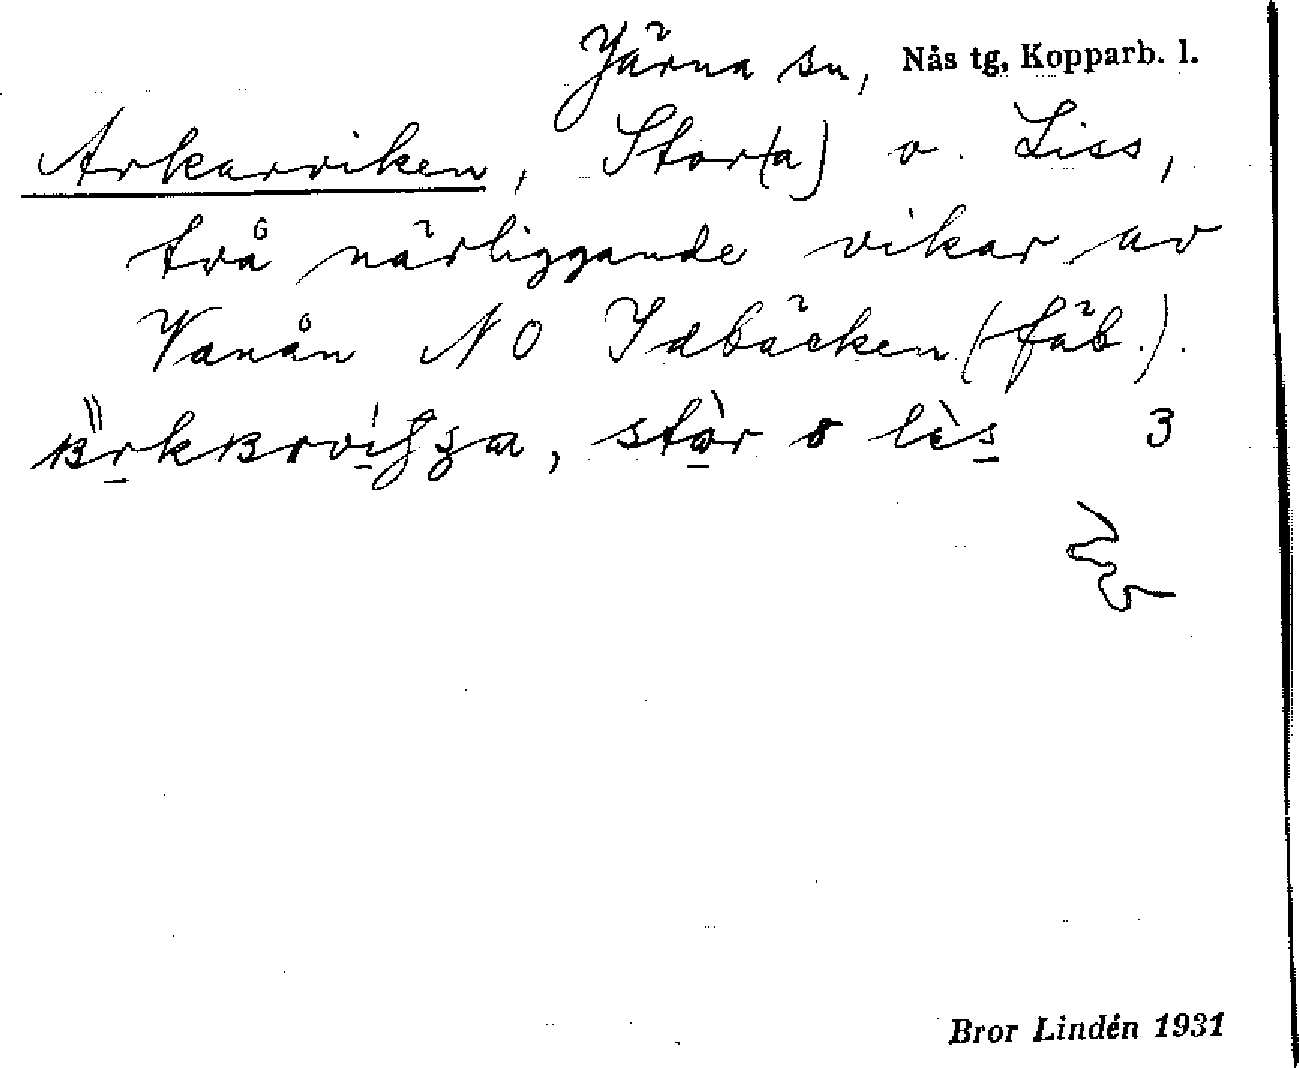 Järna sn, Nås tg, Kopparb. l.
Arkarviken, Stor(a) o. Liss,
två närliggande vikar av
Vanån NO Idbäcken (fäb.).
stòr o lìs 3
Bror Lindén 1931